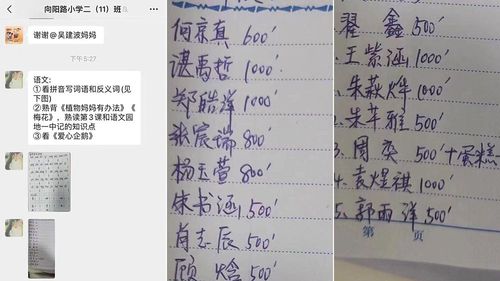 向阳路小学二（11）班
谢谢@吴建波妈妈
下午5:27
语文：
①看拼音写词语和反义词(见下图)
②熟背《植物妈妈有办法》《梅花》，熟读第3课和语文园地一中记的知识点
③看《爱心企鹅》
何京真 600'
谌禹哲 1000'
郑皓泽 1000'
张宸瑞 800'
杨玉萱 800'
朱书涵 1500'
肖志辰 500'
顾晗 500'
翟鑫 500'
王紫涵 1000'
朱荻烨 1000'
朱芊雅 500'
3、周奕 500'+蛋糕
4、袁煜祺 1000'
5、郭雨泽 500'
第 页